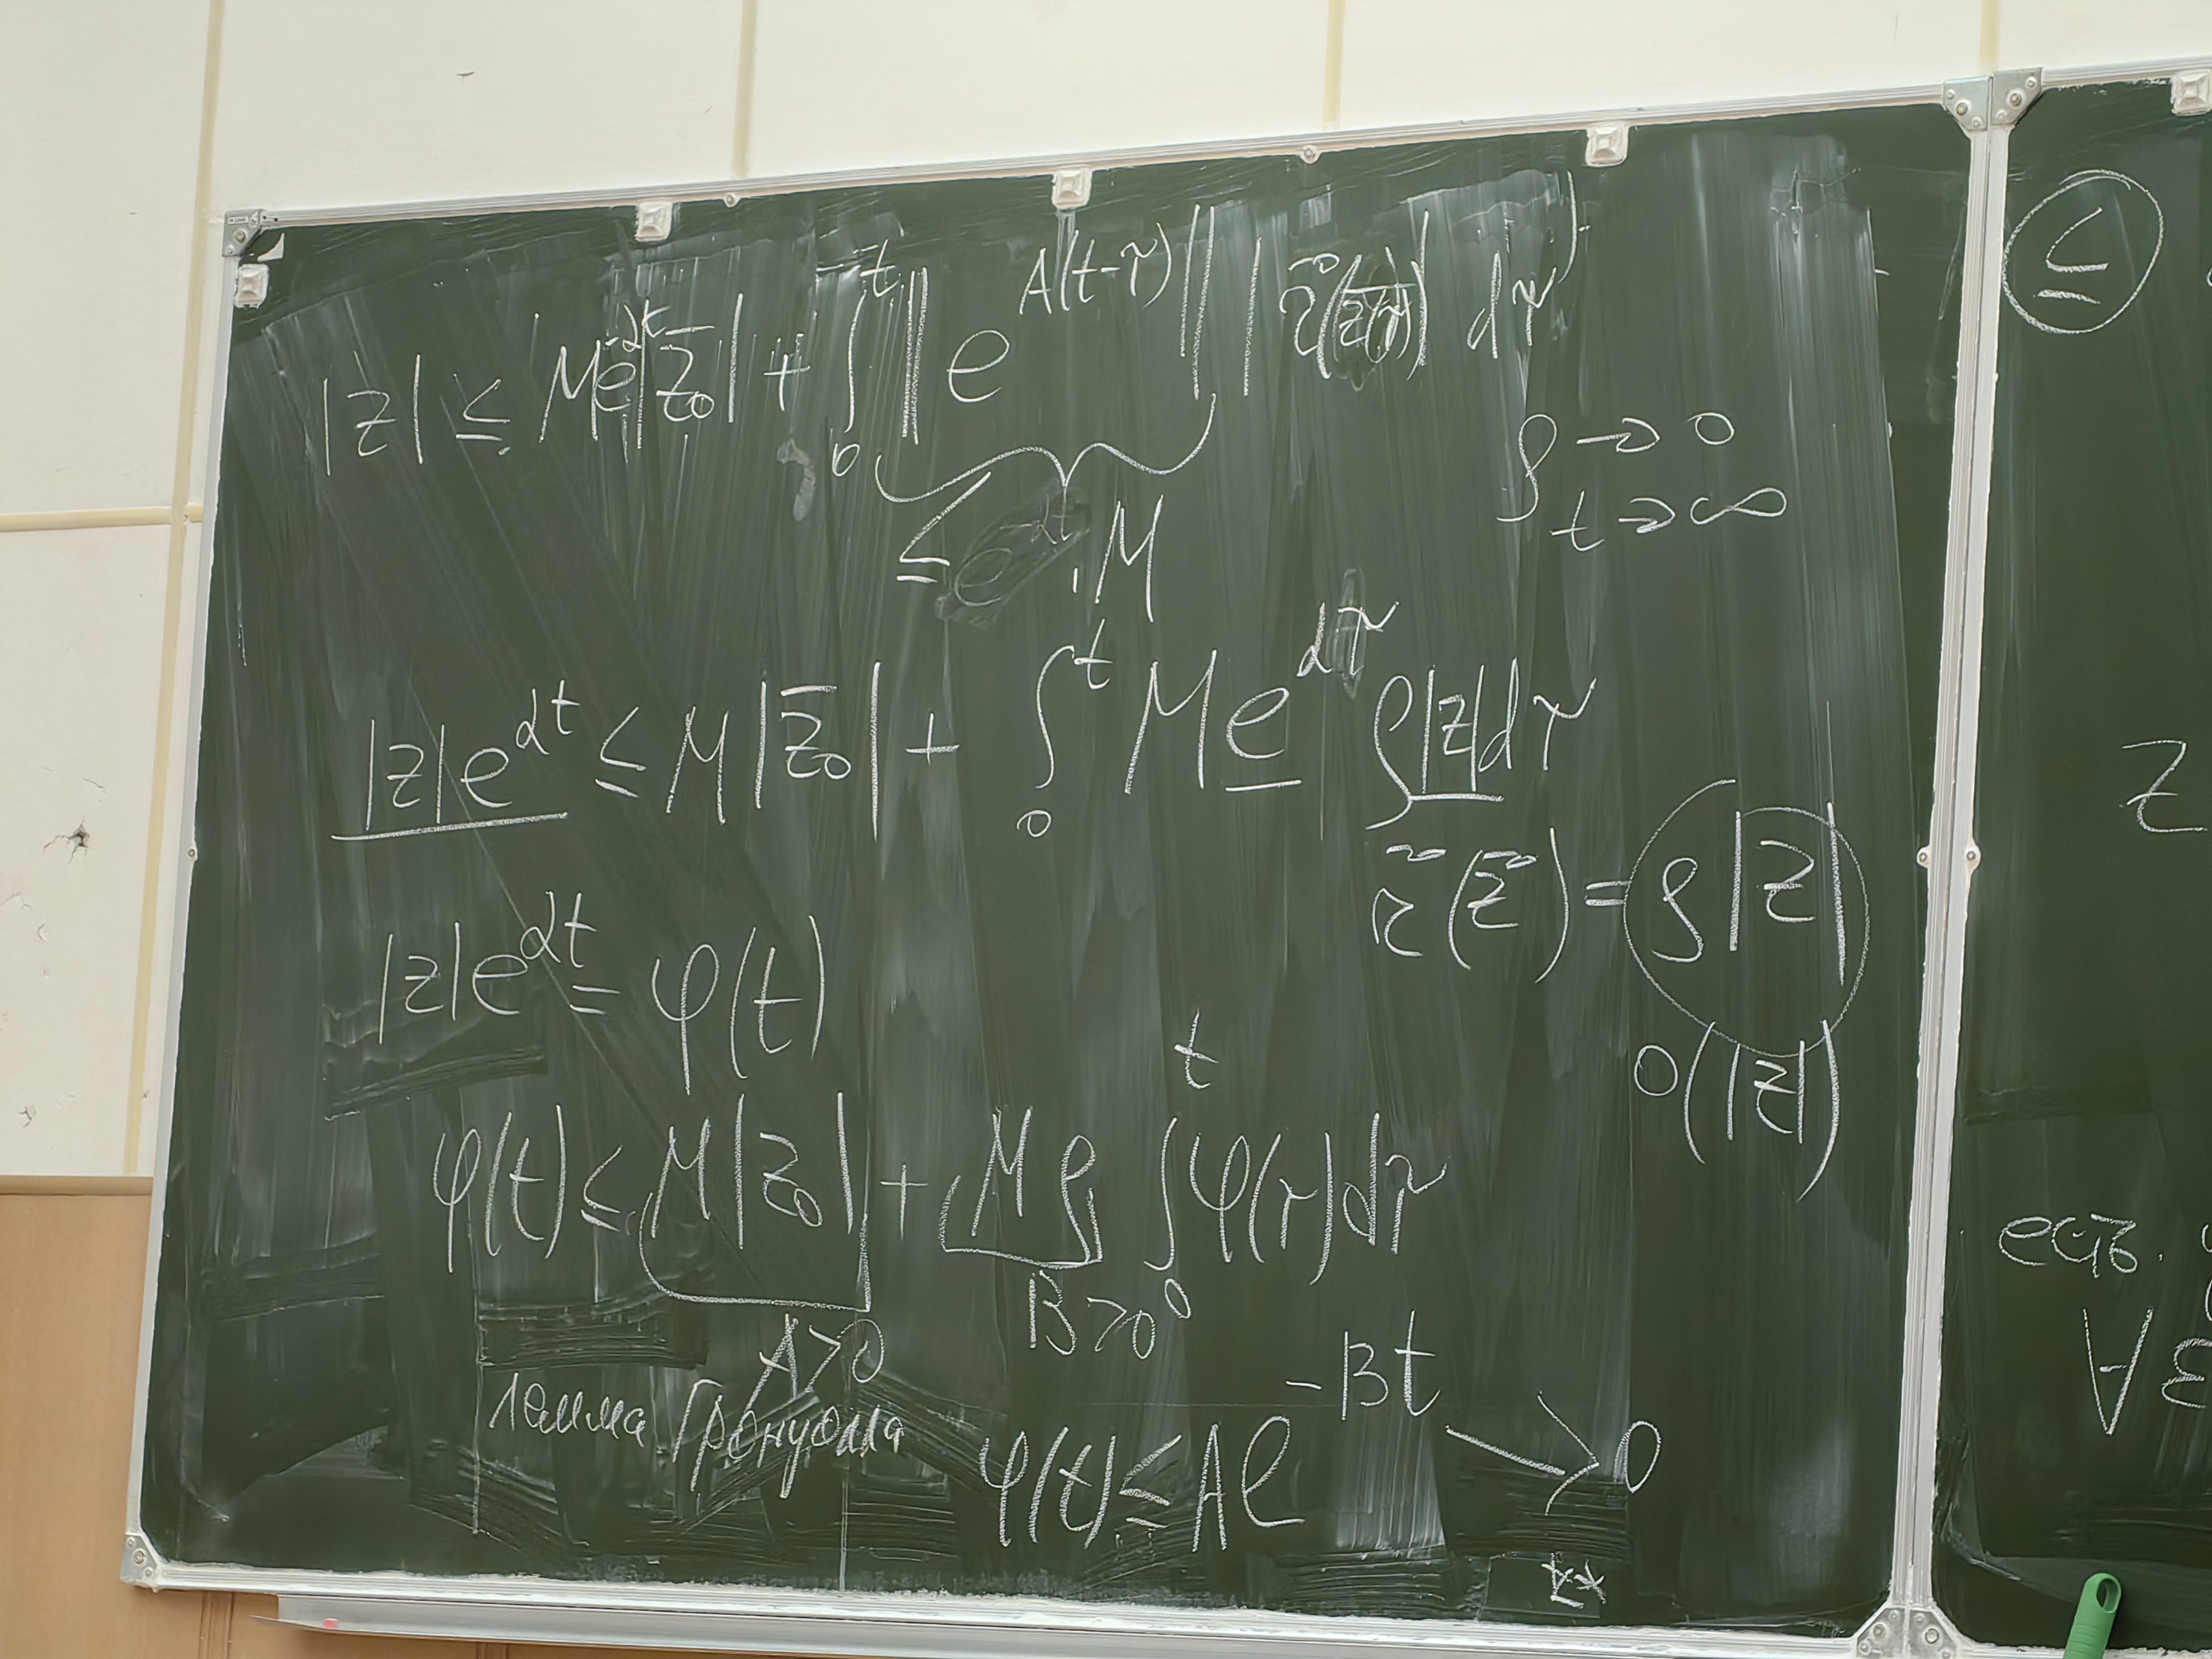 |z| ≤ Me^{-αt}|z̄₀| + ∫₀ᵗ ‖e^{A(t-τ)}‖ |r̄(z̄(τ))| dτ
ρ → 0
t → ∞
≤ M
|z|e^{αt} ≤ M|z̄₀| + ∫₀ᵗ Me^{ατ} ρ|z|dτ
r̄(z̄) = ρ|z|
|z|e^{αt} = φ(t)
o(|z|)
φ(t) ≤ M|z₀| + Mρ ∫₀ᵗ φ(τ)dτ
A>0
B>0
Лемма Гронуолла
φ(t) ≤ Ae^{-Bt} → 0
≤
z
если
∀ ε